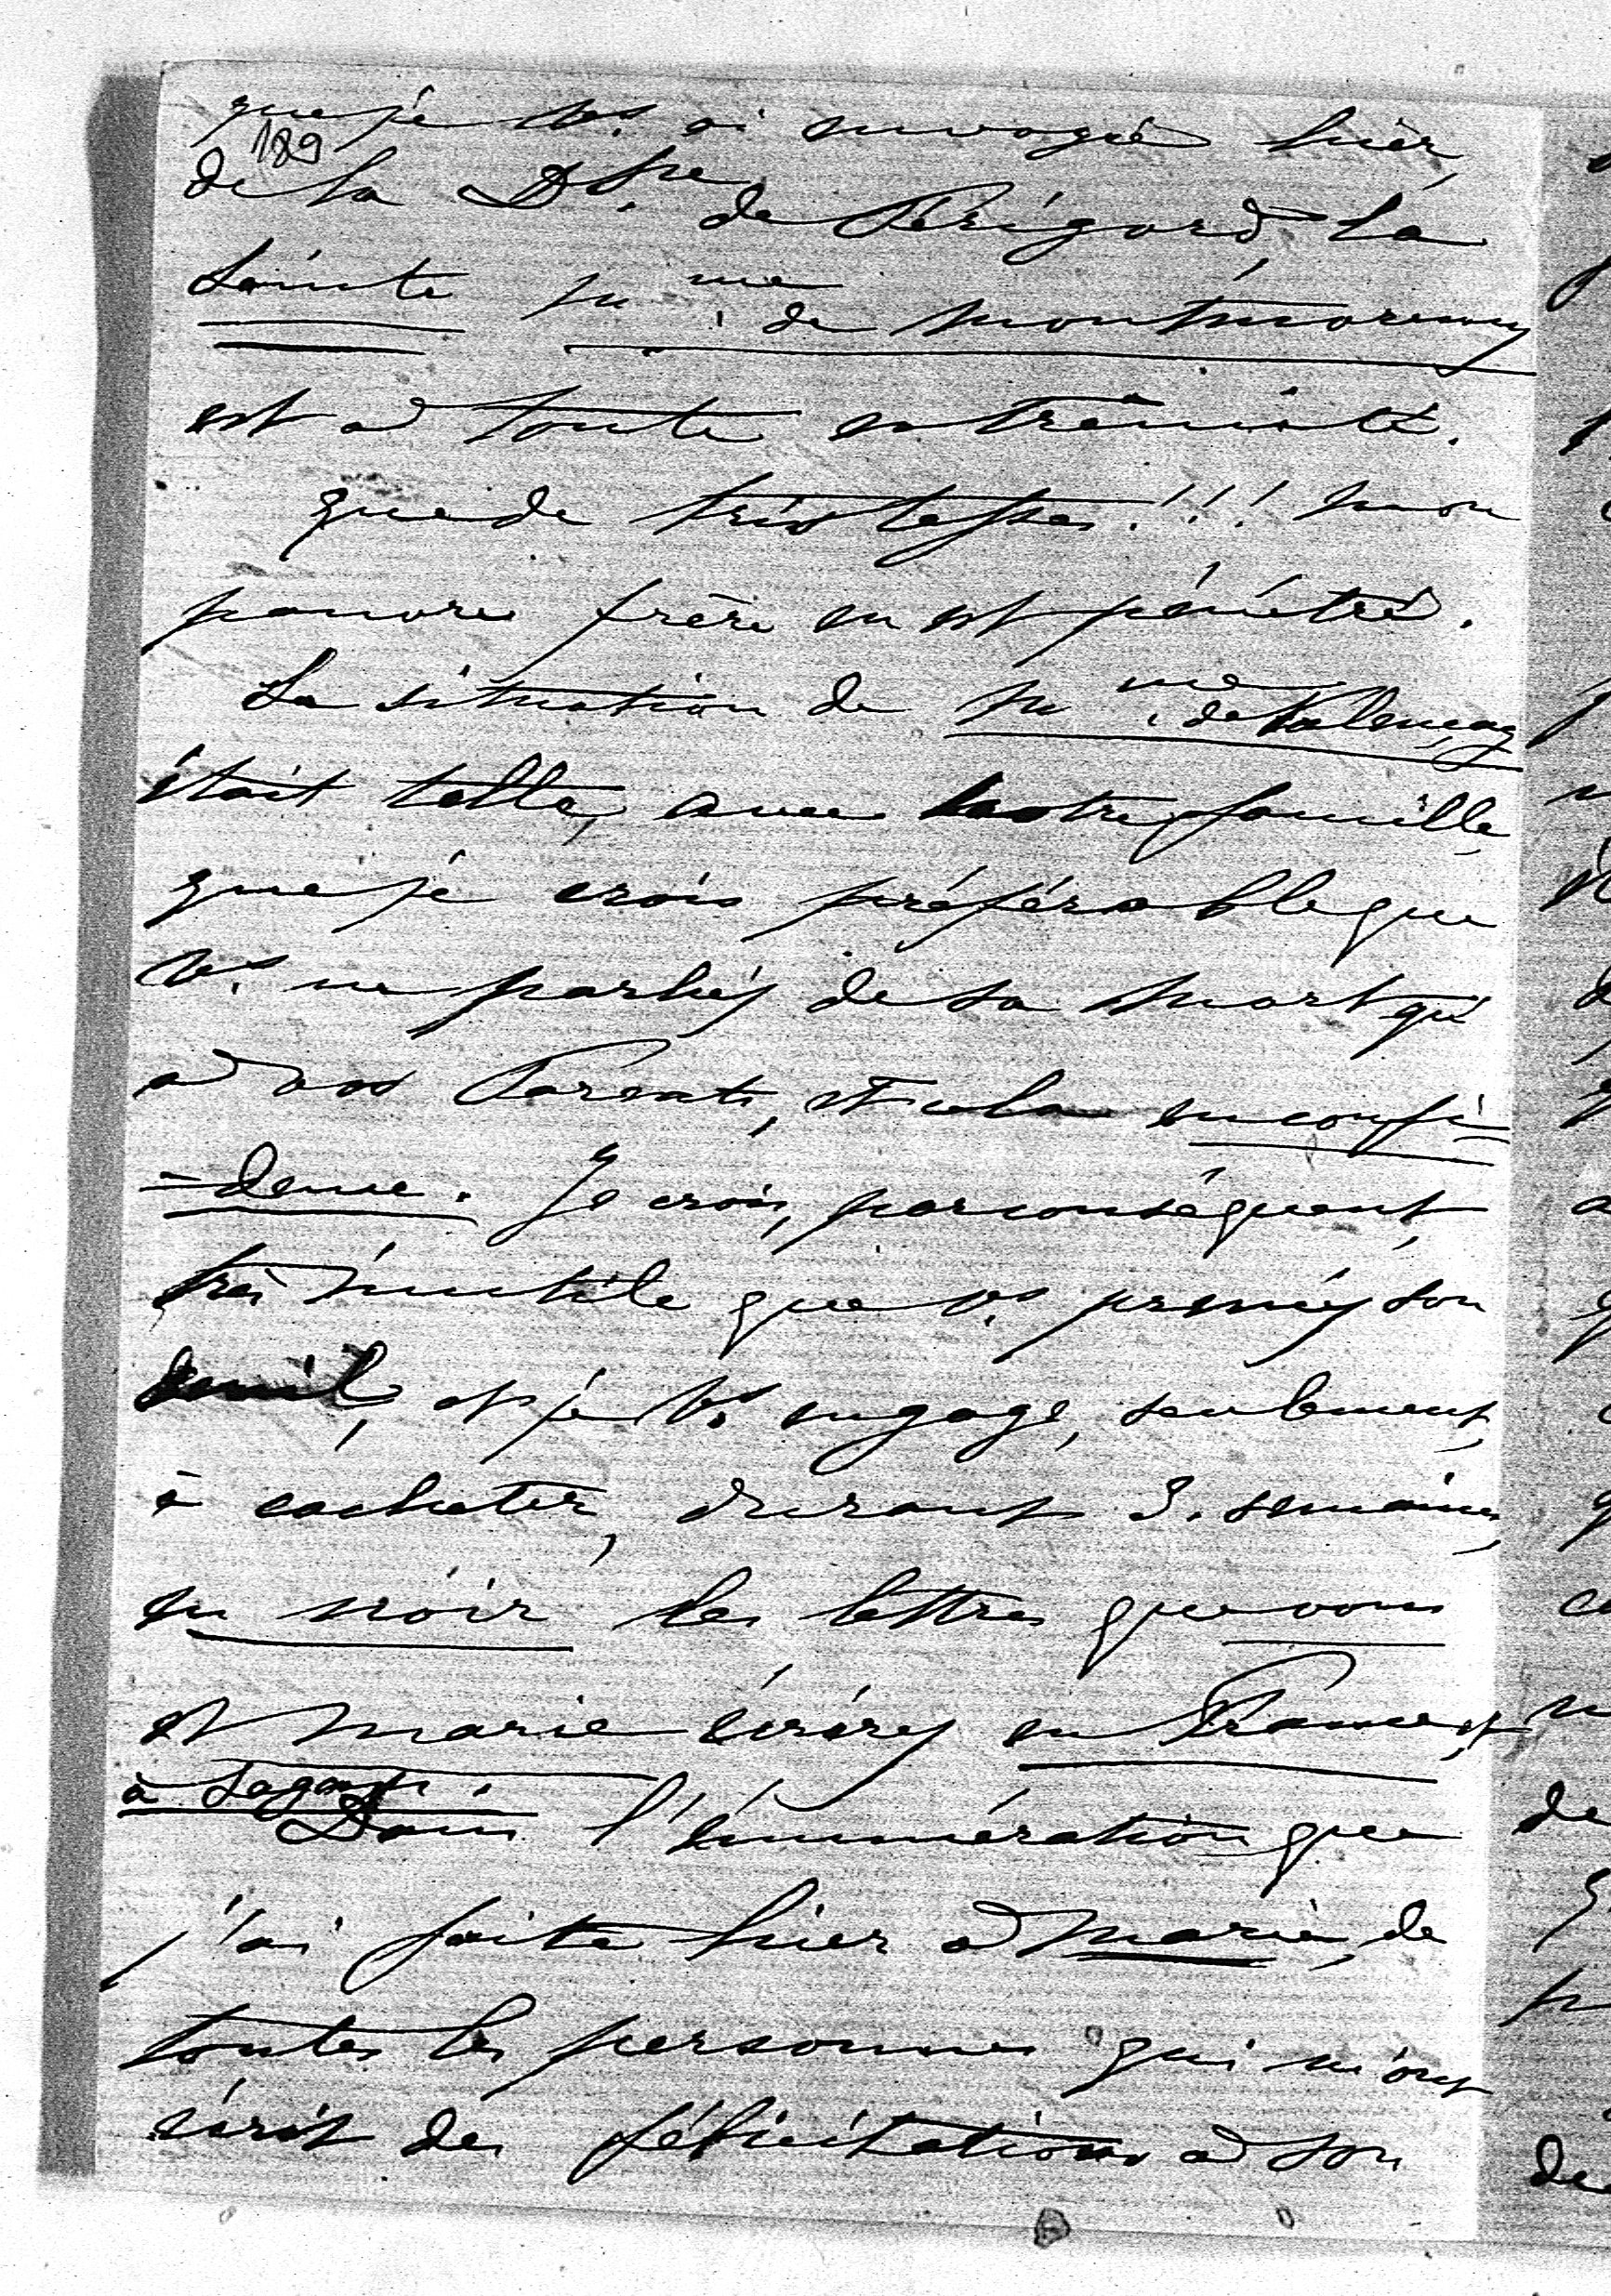 que je vs. ai envoyée hier,
189
de la Dsse. de Périgord. La
Sainte mme. de montmorency
est à toute extrêmité.
que de tristesses!!! mon
pauvre frère en est pénétré.
La situation de mme. de Valençay
était telle, avec notre famille,
que je crois préférable que
vs. ne parliéz de sa mort qu'
à vos Parents, et cela en confi-
=dence. Je crois, par conséquent,
très inutile que vs. preniéz son
deuil, et je vs. engage, seulement,
à cacheter, durant 3. semaines,
en noir les lettres que vous
et marie écriréz en France, et
à Sagan. Dans l'énumération que
j'ai faite hier à marie, de
toutes les personnes qui m'ont
écrit des félicitations à son